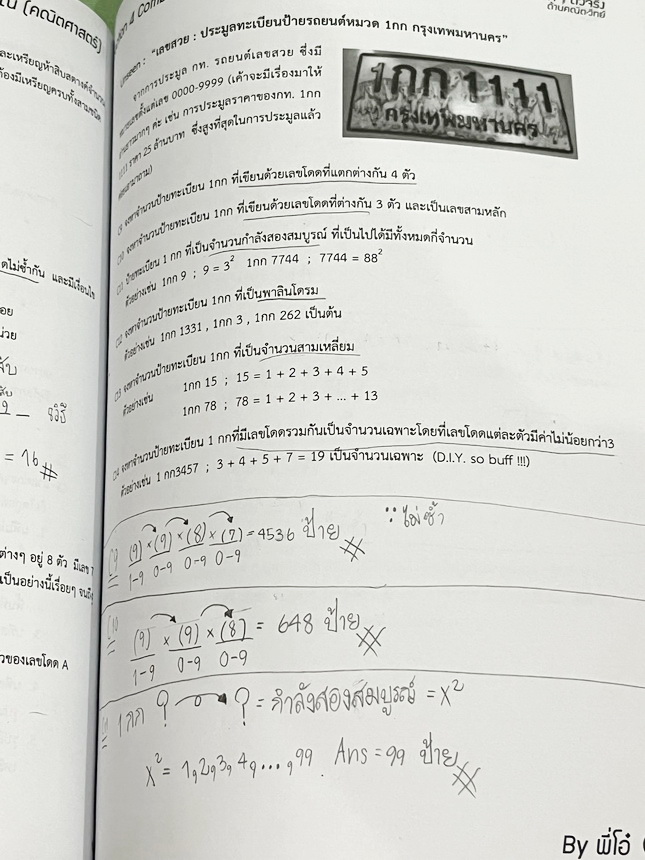 น (คณิตศาสตร์)
ด้านคณิต-วิทย์
Unseen : "เลขสวย : ประมูลทะเบียนป้ายรถยนต์หมวด 1กก กรุงเทพมหานคร"
จากการประมูล กท. รถยนต์เลขสวย ซึ่งมี
หมายเลขตั้งแต่เลข 0000-9999 (เค้าจะมีเรื่องมาให้
ค่ะ เช่น การประมูลราคาของกท. 1กก
ราคา 25 ล้านบาท ซึ่งสูงที่สุดในการประมูลแล้ว
1กก 1111
กรุงเทพมหานคร
C9 จงหาจำนวนป้ายทะเบียน 1กก ที่เขียนด้วยเลขโดดที่แตกต่างกัน 4 ตัว
C10 จงหาจำนวนป้ายทะเบียน 1กก ที่เขียนด้วยเลขโดดที่ต่างกัน 3 ตัว และเป็นเลขสามหลัก
C11 ป้ายทะเบียน 1 กก ที่เป็นจำนวนกำลังสองสมบูรณ์ ที่เป็นไปได้มีทั้งหมดกี่จำนวน
ตัวอย่างเช่น 1กก 9 ; 9 = 3² 1กก 7744 ; 7744 = 88²
C12 จงหาจำนวนป้ายทะเบียน 1กก ที่เป็นพาลินโดรม
ตัวอย่างเช่น 1กก 1331 , 1กก 3 , 1กก 262 เป็นต้น
C13 จงหาจำนวนป้ายทะเบียน 1กก ที่เป็นจำนวนสามเหลี่ยม
ตัวอย่างเช่น 1กก 15 ; 15 = 1 + 2 + 3 + 4 + 5
1กก 78 ; 78 = 1 + 2 + 3 + ... + 13
C14 จงหาจำนวนป้ายทะเบียน 1 กกที่มีเลขโดดรวมกันเป็นจำนวนเฉพาะโดยที่เลขโดดแต่ละตัวมีค่าไม่น้อยกว่า3
ตัวอย่างเช่น 1 กก3457 ; 3 + 4 + 5 + 7 = 19 เป็นจำนวนเฉพาะ (D.I.Y. so buff !!!)
(9) × (9) × (8) × (7) = 4536 ป้าย ∵ ไม่ซ้ำ
1-9 0-9 0-9 0-9
(9) × (9) × (8) = 648 ป้าย
1-9 0-9 0-9
1กก ? ? = กำลังสองสมบูรณ์ = x²
x² = 1, 2, 3, 4, ..., 99 Ans = 99 ป้าย
By พี่โอ๋
ดไม่ซ้ำกัน และมีเงื่อนไข
9 – 8วิธี
= 16
ต่างๆ อยู่ 8 ตัว มีเลข 7
เป็นอย่างนี้เรื่อยๆ จนถึง
วของเลขโดด A